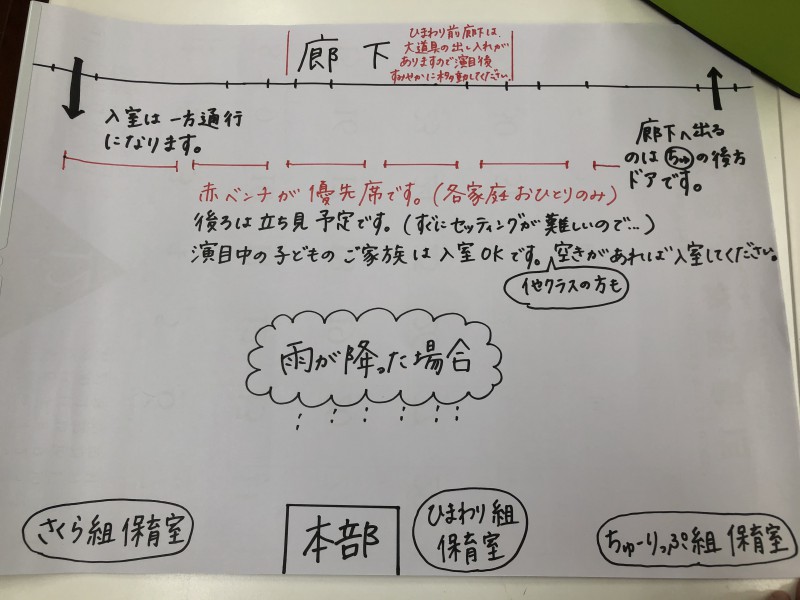 廊下
ひまわり前廊下は、
大道具の出し入れが
ありますので演目後
すみやかに移動してください。
入室は一方通行
になります。
廊下へ出る
のはちゅの後方
ドアです。
赤ベンチが優先席です。(各家庭おひとりのみ)
後ろは立ち見予定です。(すぐにセッティングが難しいので…)
演目中の子どものご家族は入室OKです。空きがあれば入室してください。
他クラスの方も
雨が降った場合
さくら組保育室
本部
ひまわり組
保育室
ちゅーりっぷ組保育室